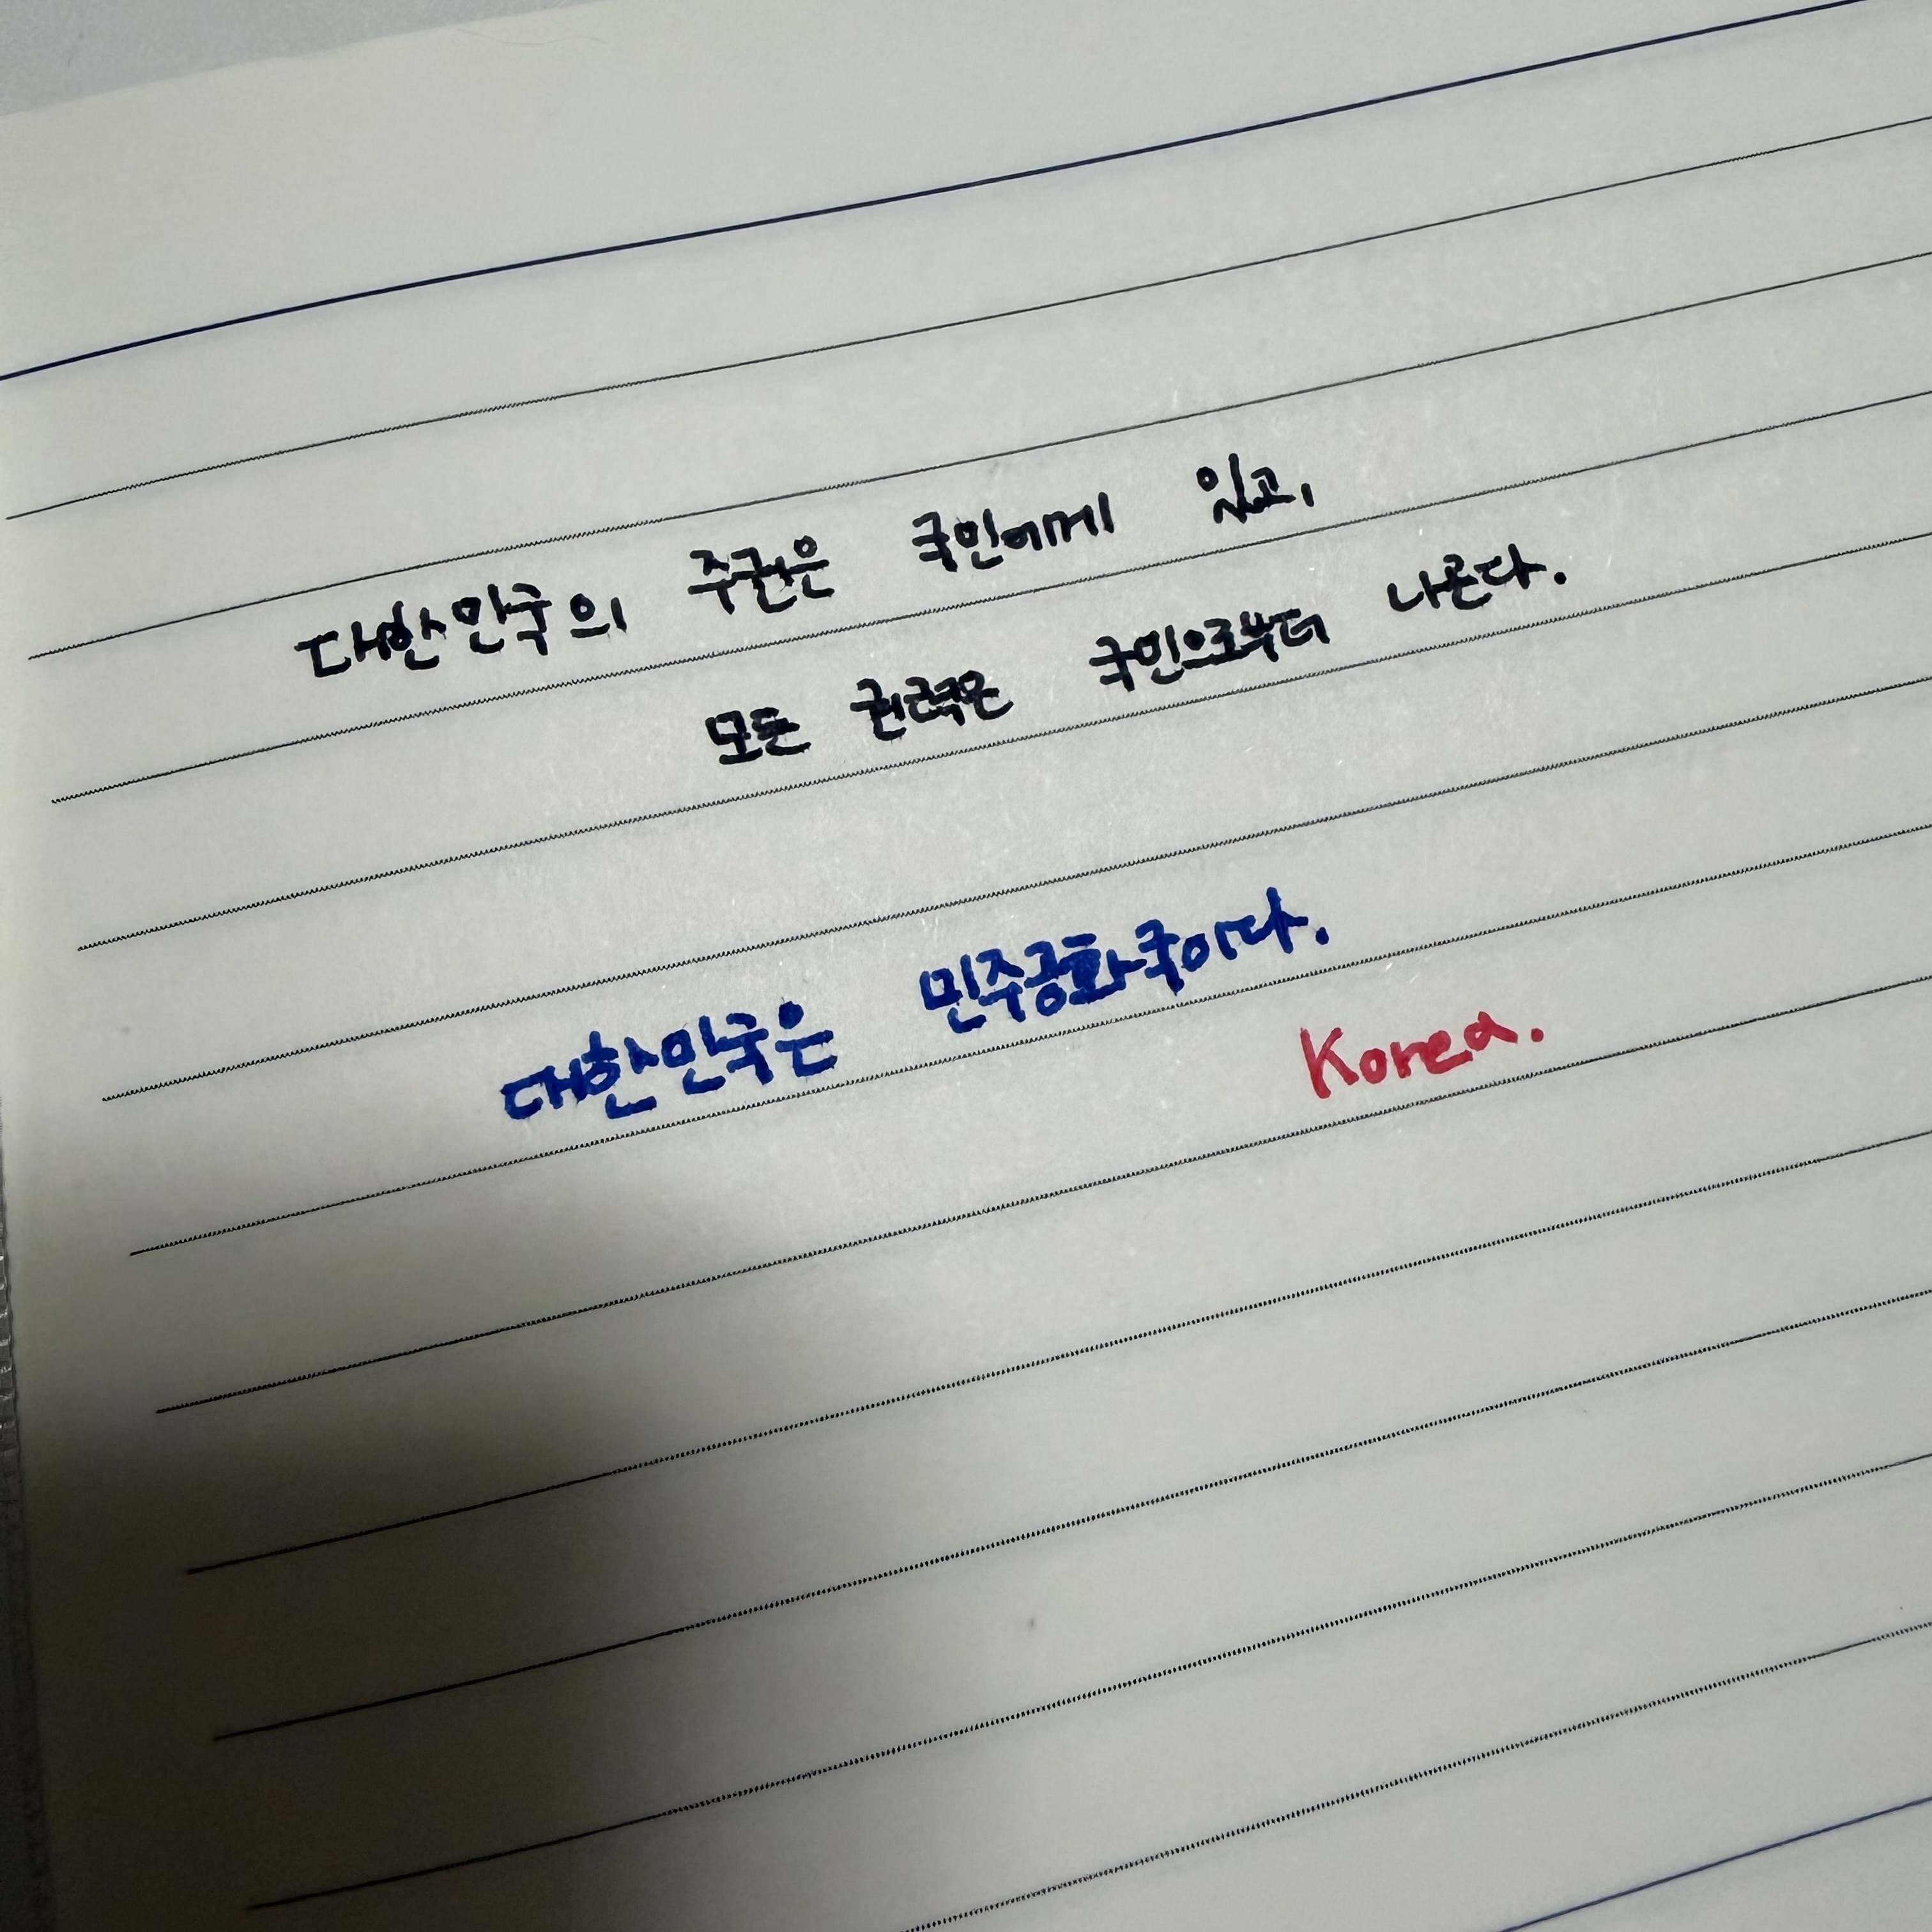 대한민국의 주권은 국민에게 있고,
모든 권력은 국민으로부터 나온다.
대한민국은 민주공화국이다.
Korea.